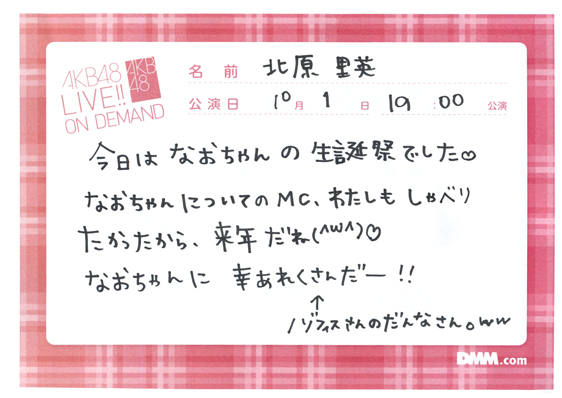 AKB48
LIVE!!
ON DEMAND
AKB
48
名前 北原 里英
公演日 10月 1日 19:00 公演
今日は なおちゃん の 生誕祭でした♡
なおちゃんについてのMC、わたしも しゃべり
たかったから、来年だね(^w^)♡
なおちゃんに 幸あれくさんだー!!
↑
ノゾフィスさんのだんなさん。ww
DMM.com